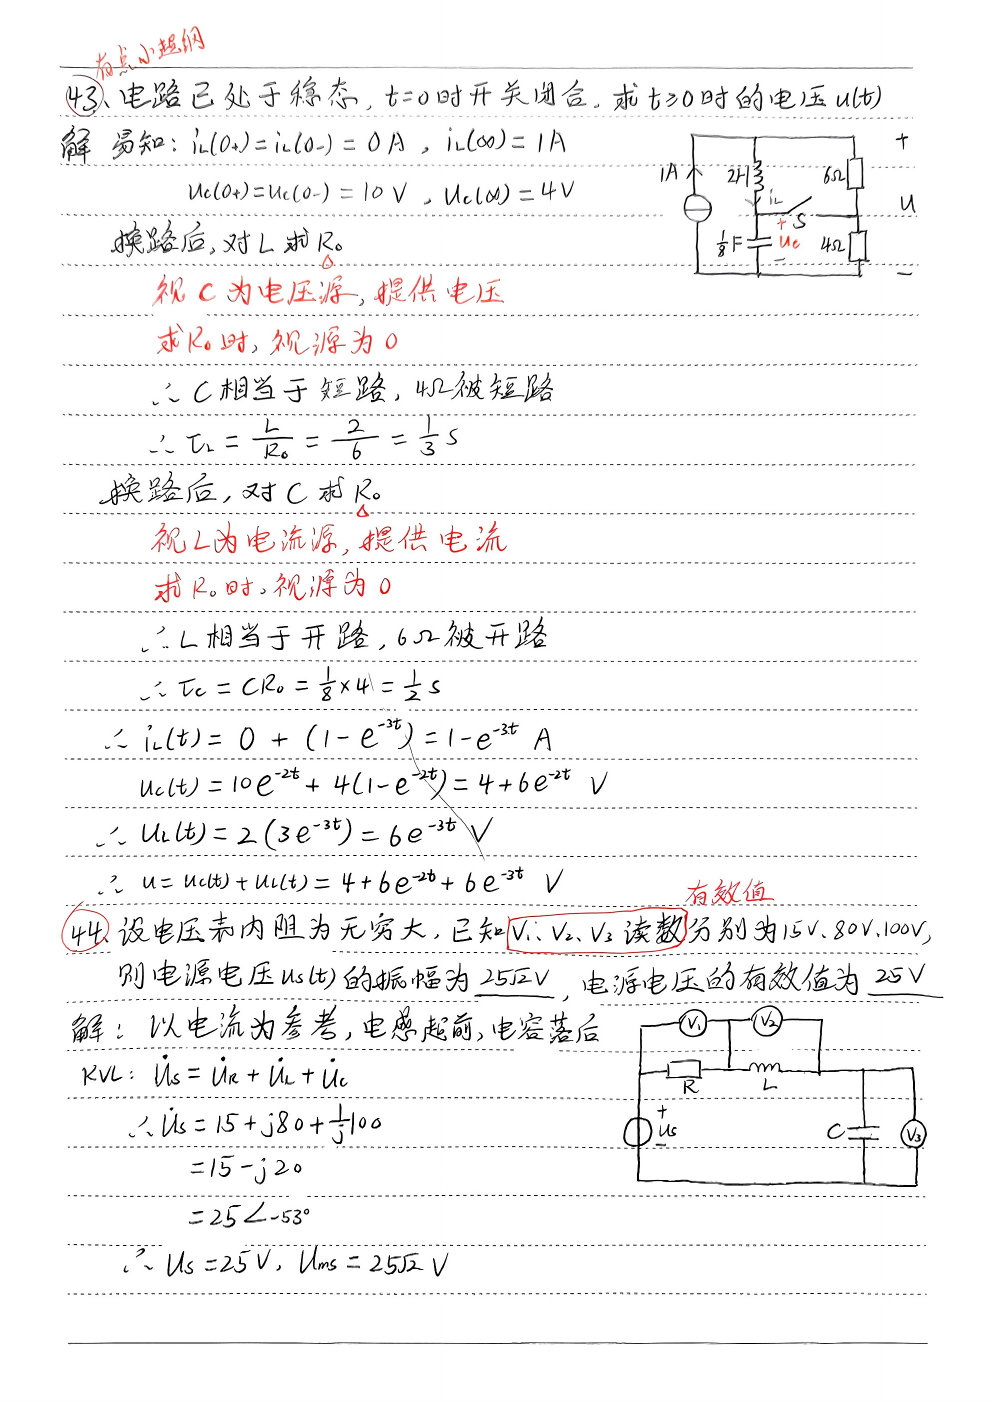 有点小超纲
43、电路已处于稳态，t=0时开关闭合，求t≥0时的电压u(t)
解 易知：iL(0+)=iL(0-)=0A，iL(∞)=1A
uc(0+)=uc(0-)=10V，uc(∞)=4V
1A
2H
6Ω
+
iL
S
u
1/8 F
+
uc
-
4Ω
-
换路后，对L求R₀
视C为电压源，提供电压
求R₀时，视源为0
∴C相当于短路，4Ω被短路
∴τL = L/R₀ = 2/6 = 1/3 s
换路后，对C求R₀
视L为电流源，提供电流
求R₀时，视源为0
∴L相当于开路，6Ω被开路
∴τc = CR₀ = 1/8×4 = 1/2 s
∴ iL(t) = 0 + (1-e^{-3t}) = 1-e^{-3t} A
uc(t) = 10e^{-2t} + 4(1-e^{-2t}) = 4+6e^{-2t} V
∴ uL(t) = 2(3e^{-3t}) = 6e^{-3t} V
∴ u = uc(t)+uL(t) = 4+6e^{-2t}+6e^{-3t} V
有效值
44、设电压表内阻为无穷大，已知V₁、V₂、V₃读数分别为15V、80V、100V，
则电源电压us(t)的振幅为 25√2V ，电源电压的有效值为 25V
解：以电流为参考，电感超前，电容落后
KVL: U̇s = U̇R + U̇L + U̇c
∴U̇s = 15 + j80 + 1/j 100
= 15 - j20
= 25∠-53°
∴ Us = 25V，Ums = 25√2 V
V₁
V₂
R
L
+
us
-
C
V₃